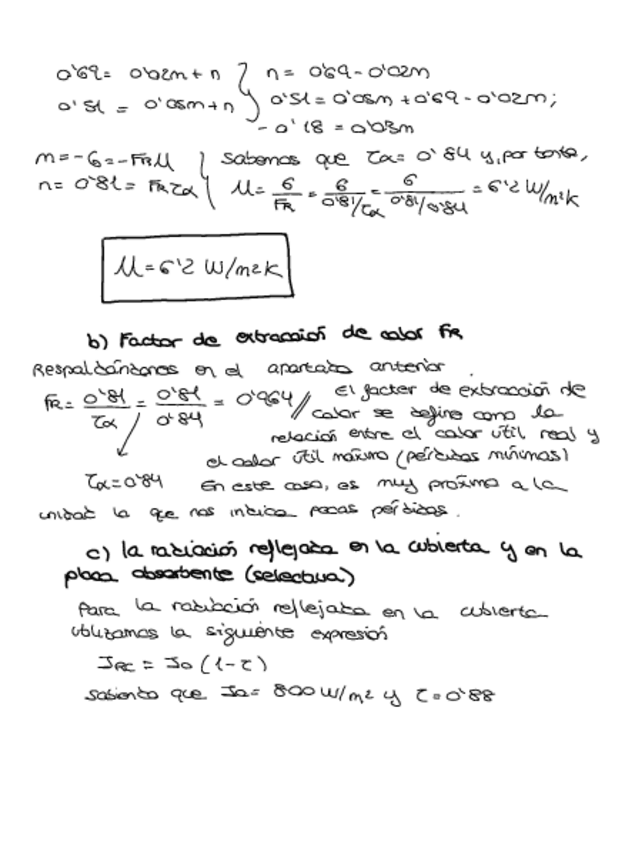 0'69 = 0'02m + n } n = 0'69 - 0'02m
0'51 = 0'05m + n } 0'51 = 0'05m + 0'69 - 0'02m;
- 0'18 = 0'03m
m = -6 = -FRU } Sabemos que τα = 0'84 y, por tanto,
n = 0'81 = FRτα } U = 6/FR = 6/(0'81/τα) = 6/(0'81/0'84) = 6'2 W/m²K
U = 6'2 W/m²K
b) Factor de extracción de calor FR
Respaldándonos en el apartado anterior
FR = 0'81/τα = 0'81/0'84 = 0'964 // El factor de extracción de
calor se define como la
relación entre el calor útil real y
el calor útil máximo (pérdidas mínimas)
τα = 0'84 En este caso, es muy próximo a la
unidad la que nos indica pocas pérdidas.
c) la radiación reflejada en la cubierta y en la
placa absorbente (selectiva)
Para la radiación reflejada en la cubierta
utilizamos la siguiente expresión
JRC = J0 (1-τ)
sabiendo que J0 = 800 W/m² y τ = 0'88